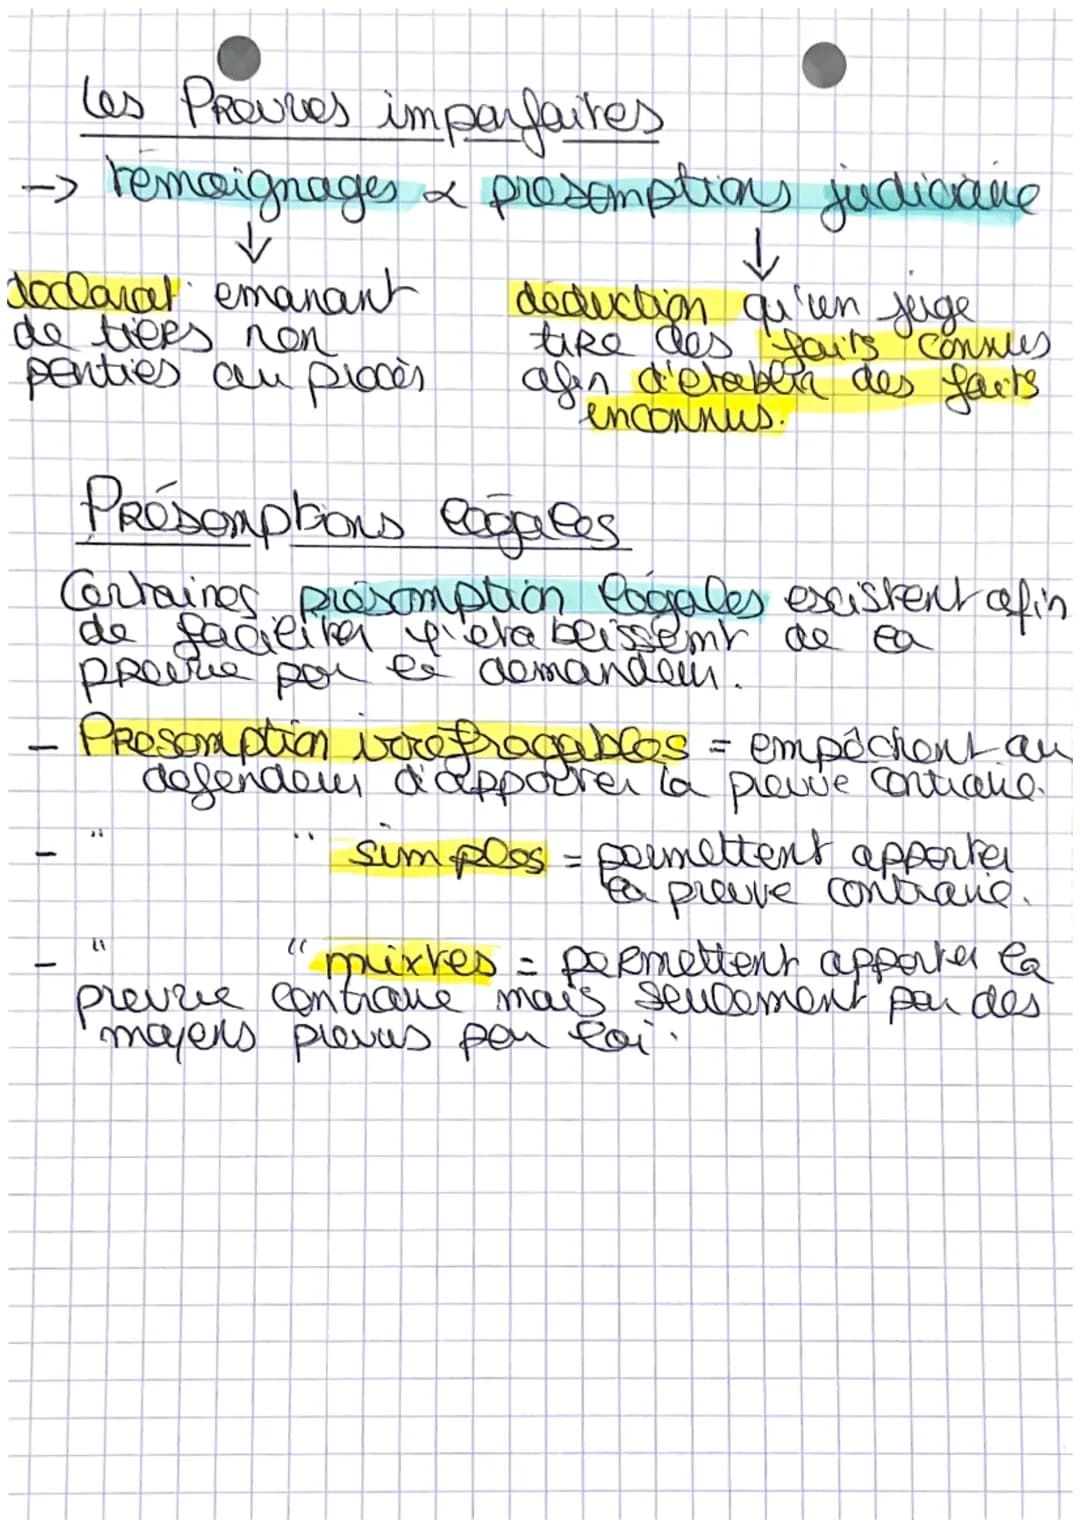 Les Preuves imparfaites
-> témoignages & présomptions judiciaire
↓ ↓
declarat° emanant
de tiers non
parties au procès
déduction qu'un juge
tire des faits connus
afin d'établir des faits
inconnus.
Présomptions légales
Certaines présomption légales existent afin
de faciliter l'etablissemt de la
preuve par le demandeur.
- Presomption irréfragables = empêchent au
defendeur d'apporter la preuve contraire.
- " " simples = permettent apporter
la preuve contraire.
- " " mixtes = permettent apporter la
preuve contraire mais seulement par des
moyens prévus par loi.